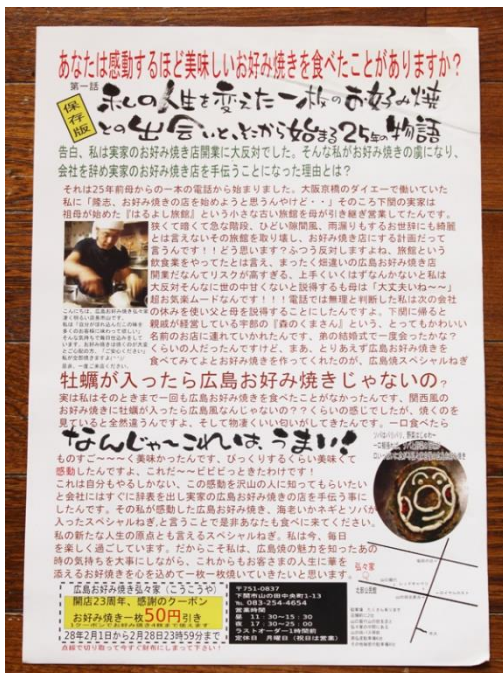 あなたは感動するほど美味しいお好み焼きを食べたことがありますか?
第一話
保存版
私の人生を変えた一枚のお好み焼
との出会いと、そこから始まる25年の物語
告白、私は実家のお好み焼き店開業に大反対でした。そんな私がお好み焼きの虜になり、
会社を辞め実家のお好み焼き店を手伝うことになった理由とは?
それは25年前母からの一本の電話から始まりました。大阪京橋のダイエーで働いていた
私に「隆志、お好み焼きの店を始めようと思うんやけど~」そのころ下関の実家は
祖母が始めた『はるよし旅館』という小さな古い旅館を母が引き継ぎ営業してたんです。
狭くて暗くて急な階段、ひどい隙間風、雨漏りもするお世辞にも綺麗
とは言えないその旅館を取り壊し、お好み焼き店にする計画だって
言うんです!!どう思います?ふつう反対しますよね、旅館という
飲食業をやってたとは言え、まったく畑違いの広島お好み焼き店
開業だなんてリスクが高すぎる、上手くいくはずなんかないと私は
大反対そんなに世の中甘くないと説得するも母は「大丈夫いね~~」
超お気楽ムードなんです!!!電話では無理と判断した私は次の会社
の休みを使い父と母を説得することにしたんですよ。下関に帰ると
親戚が経営している宇部の『森のくまさん』という、とってもかわいい
名前のお店に連れていかれたんです。弟の結婚式で一度会ったかな?
くらいの人だったんですけど、まあ、とりあえず広島お好み焼きを
食べてみてよとお好み焼きを作ってくれたのが、広島焼スペシャルねぎ
牡蠣が入ったら広島お好み焼きじゃないの?
実は私はそのときまで一回も広島お好み焼きを食べたことがなかったんです、関西風の
お好み焼きに牡蠣が入ったら広島風なんじゃないの??くらいの感じでしたが、焼くのを
見ていると全然違うんですよ、そして物凄くいい匂いがしてきたんです。一口食べたら
なんじゃ~これは、うまい!
ものすご~~~く美味かったんです、びっくりするくらい美味くて
感動したんですよ、これだ~~ビビビっときたわけです!
これは自分もやるしかない、この感動を沢山の人に知ってもらいたい
と会社にはすぐに辞表を出し実家の広島お好み焼きの店を手伝う事に
したんです。その私が感動した広島お好み焼き、海老いかネギとソバが
入ったスペシャルねぎ,と言うことで是非あなたも食べに来てください、
私の新たな人生の原点とも言えるスペシャルねぎ。私は今、毎日
を楽しく過ごしています。だからこそ私は、広島焼の魅力を知ったあの
時の気持ちを大事にしながら、これからもお客さまの人生に華を
添えるお好み焼きを心を込めて一枚一枚焼いていきたいと思います。
弘々家
広島お好み焼き弘々家(こうこうや)
開店23周年、感謝のクーポン
お好み焼き一枚50円引き
28年2月1日から2月28日23時59分まで
点線で切り取って今すぐ財布にしまって下さい!
〒751-0837
下関市山の田中央町1-13
℡ 083-254-4654
営業時間
昼 11:30~15:30
夜 17:30~25:00
ラストオーダー1時間前
定休日 月曜日(祝日は営業)